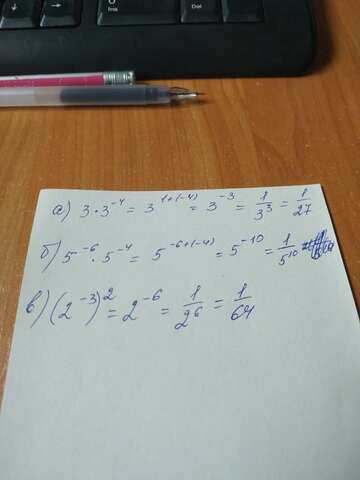 0
Ins
Del
а) 3·3⁻⁴ = 3¹⁺⁽⁻⁴⁾ = 3⁻³ = 1/3³ = 1/27
б) 5⁻⁶·5⁻⁴ = 5⁻⁶⁺⁽⁻⁴⁾ = 5⁻¹⁰ = 1/5¹⁰
в) (2⁻³)² = 2⁻⁶ = 1/2⁶ = 1/64